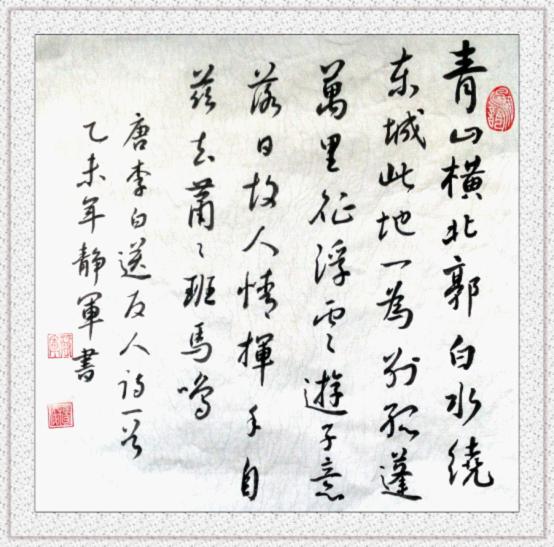 青山橫北郭白水繞
東城此地一為別孤蓬
萬里征浮雲遊子意
落日故人情揮手自
茲去蕭々班馬鳴
唐李白送友人詩一首
乙未年靜軍書